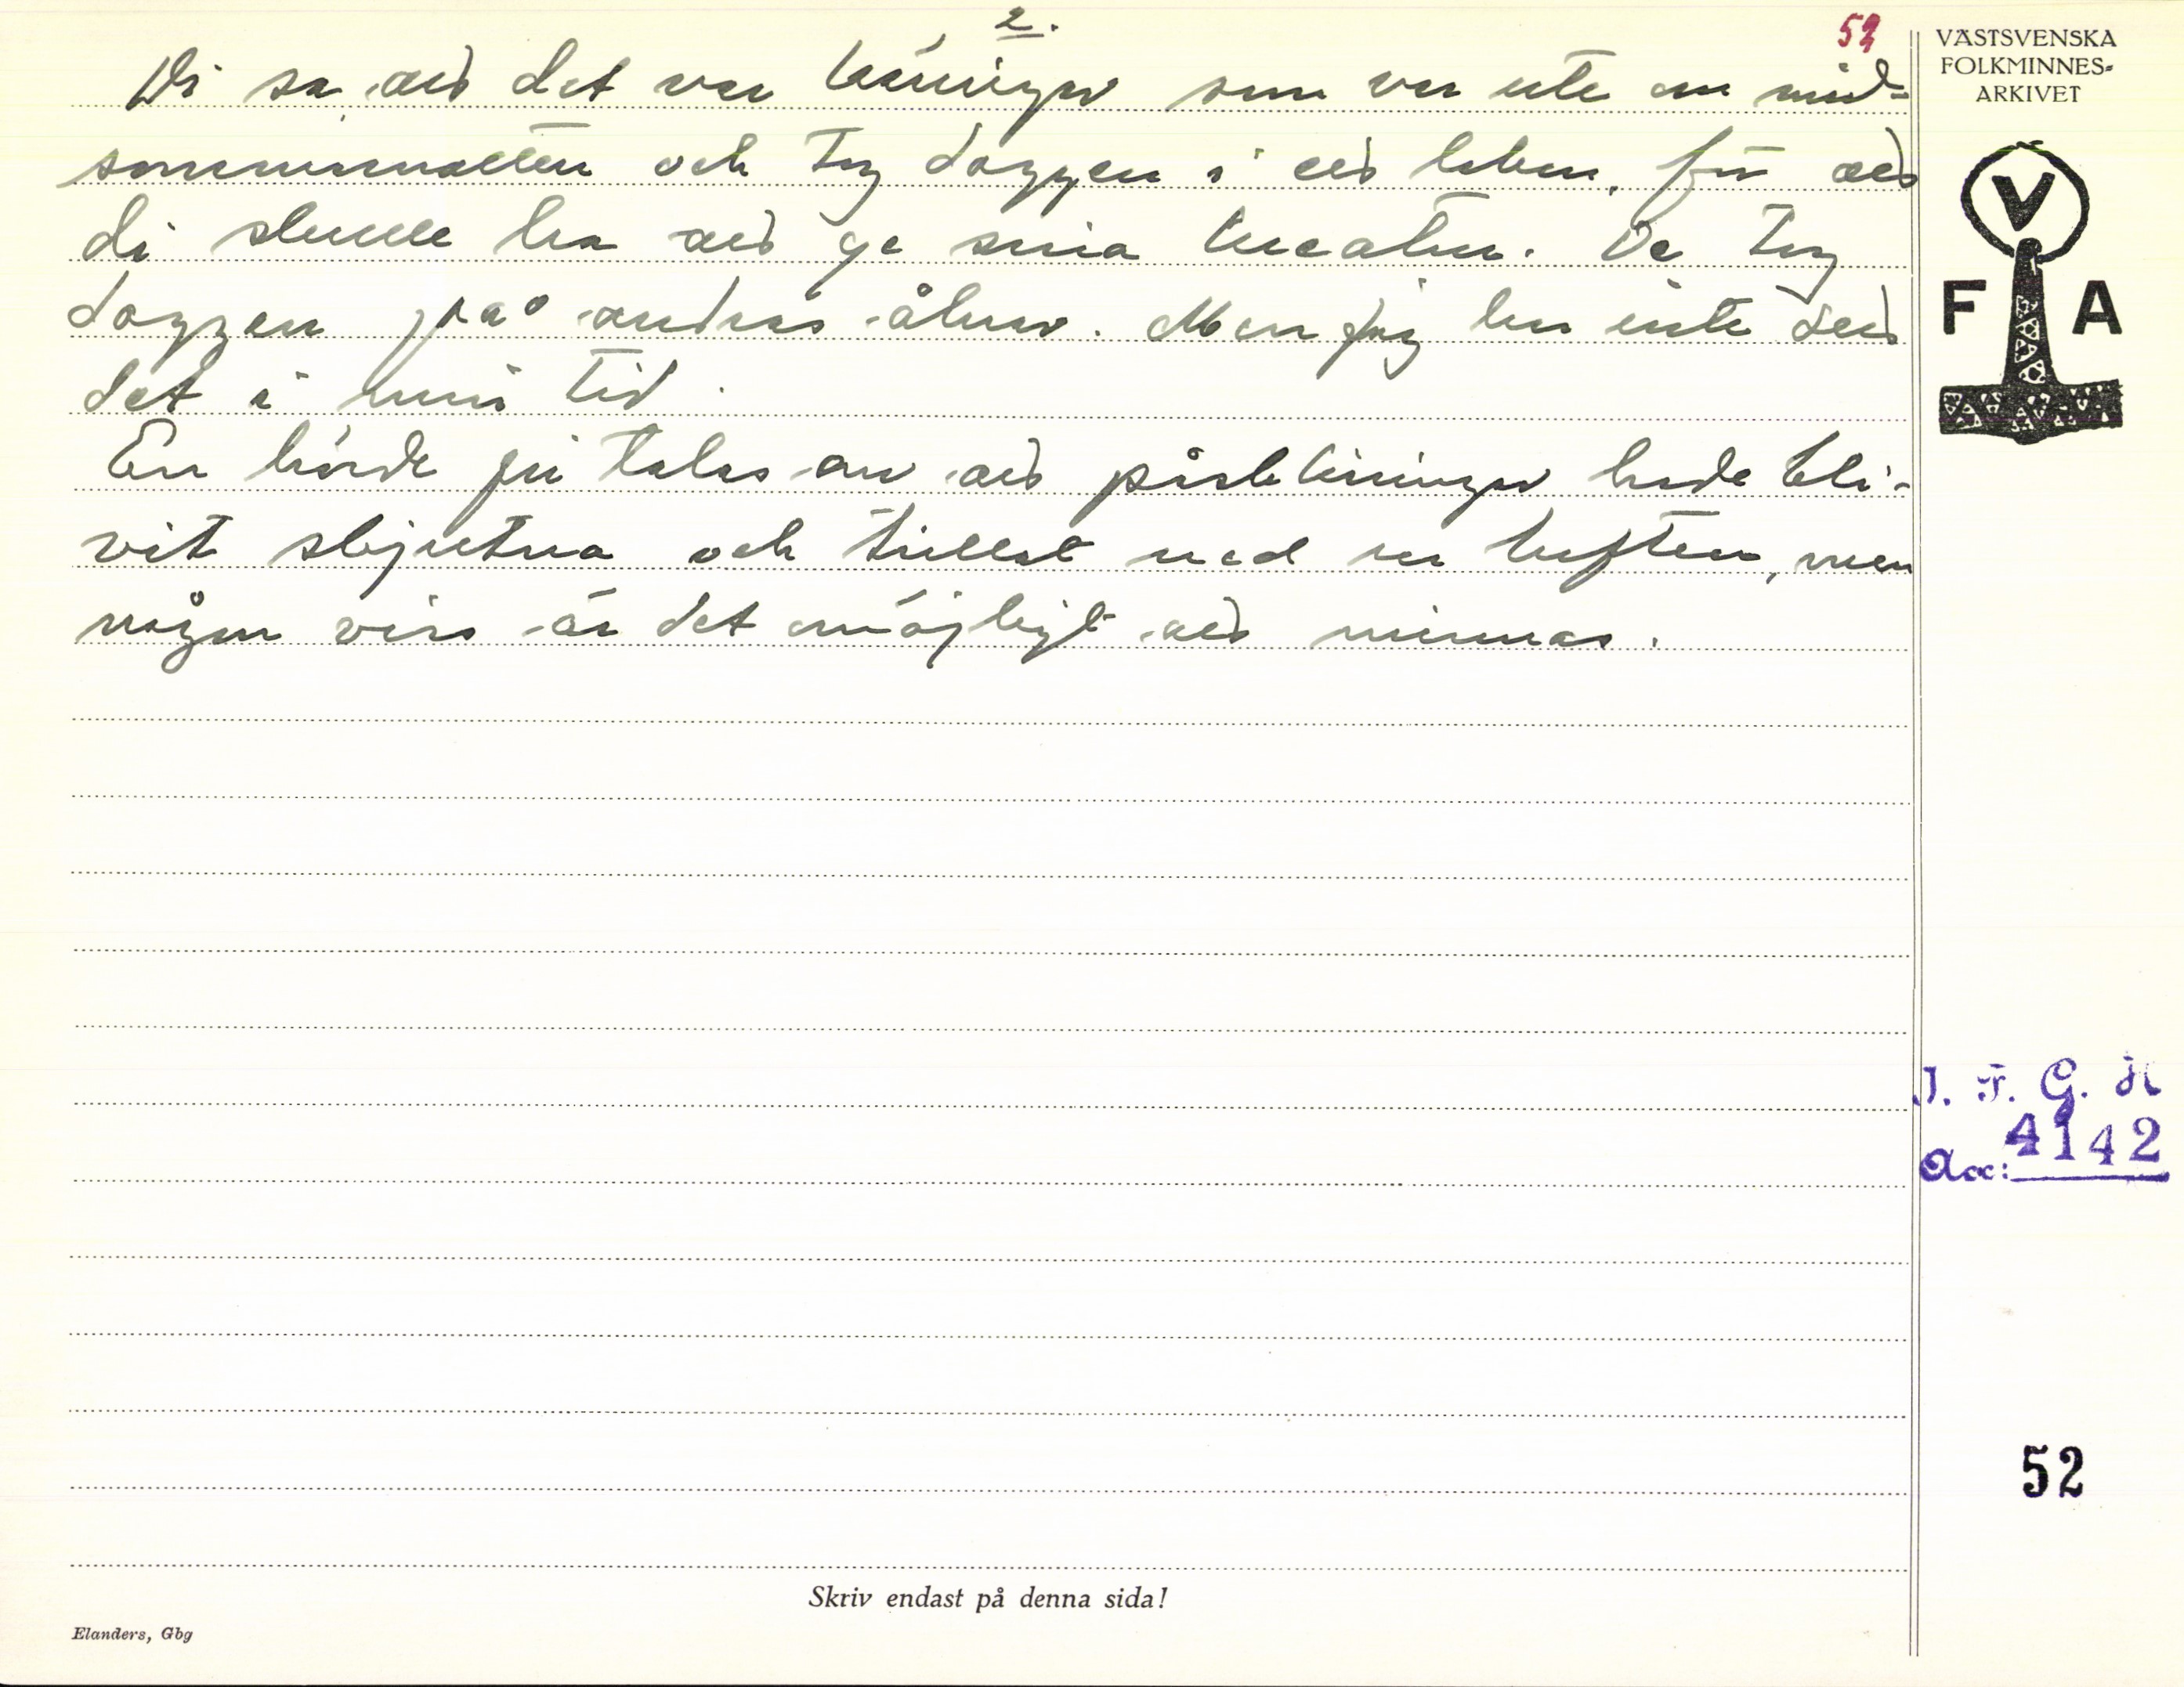 2.
52
VÄSTSVENSKA
FOLKMINNES-
ARKIVET
Di sa att det var käringar som var ute om mid-
sommarnatten och tog daggen i ett laken, för att
di skulle ha att ge sina kreatur. De tog
daggen på andras åkrar. Men jag har inte sett
det i min tid.
En hörde ju talas om att påskkäringar hade bli-
vit skjutna och trillat ned ur luften, men
någon viss är det omöjligt att minnas.
V
F A
I. F. G. H
Acc: 4142
52
Skriv endast på denna sida!
Elanders, Gbg